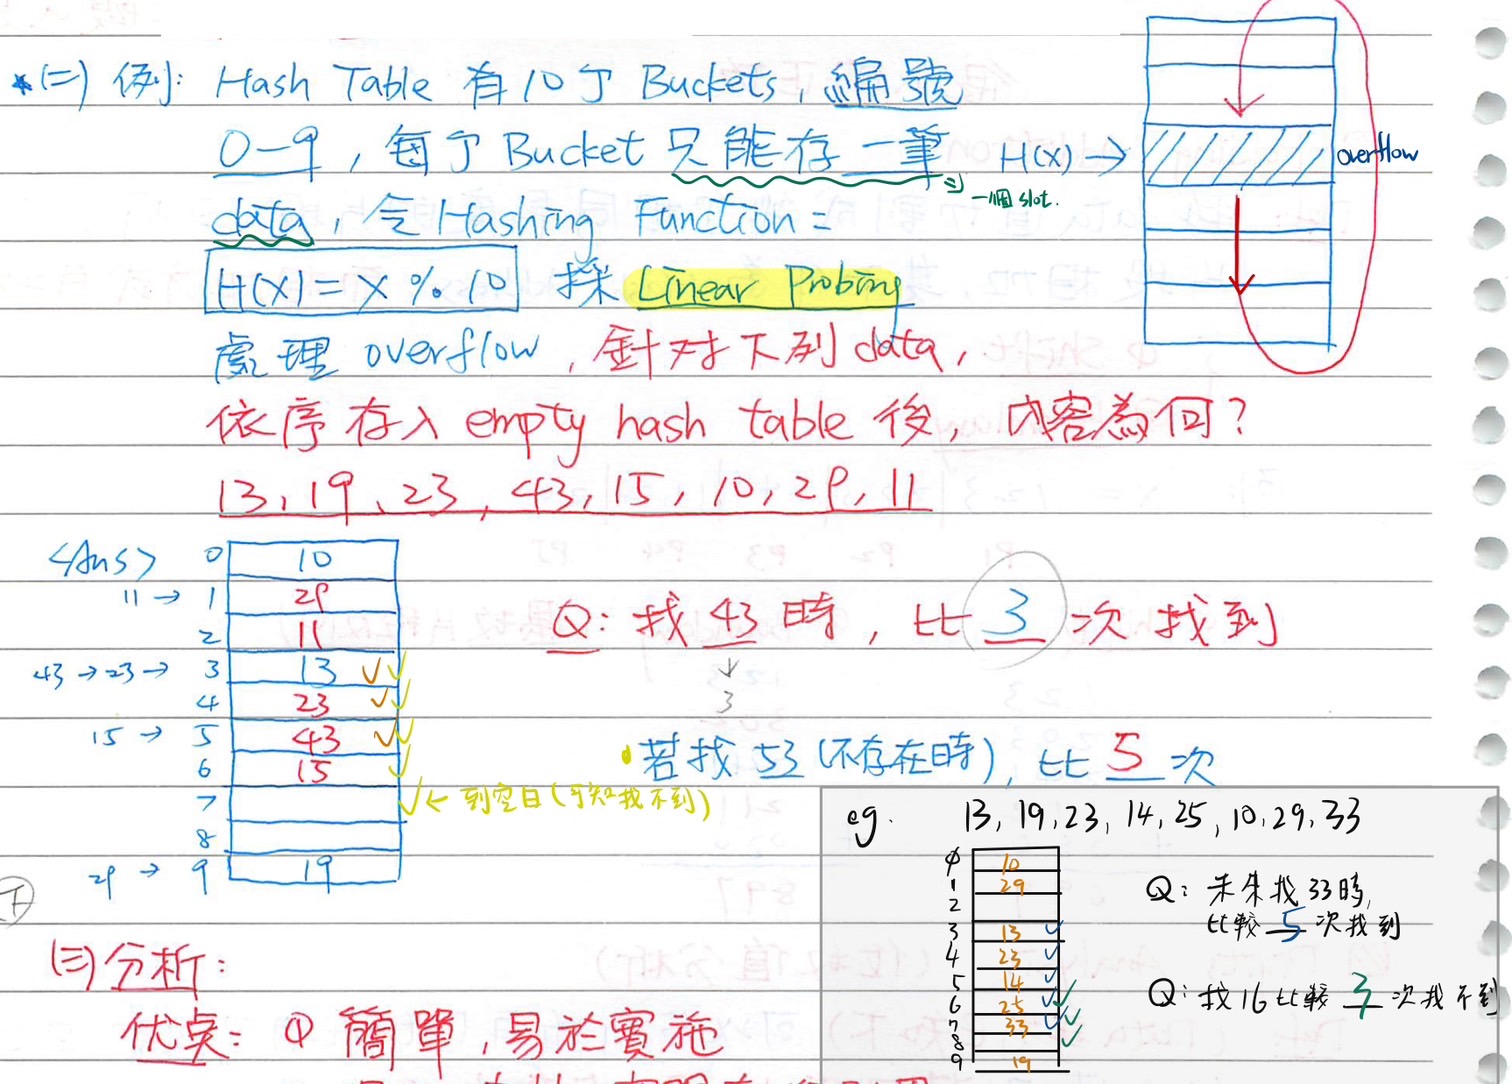 *(二) 例: Hash Table 有10个 Buckets, 編號
0-9, 每个 Bucket 只能存一筆
=> 一個 slot.
data, 令 Hashing Function =
H(X) = X % 10 採 Linear Probing
處理 overflow, 針对下列 data,
依序存入 empty hash table 後, 内容為何?
13, 19, 23, 43, 15, 10, 29, 11
H(X) →
overflow
<Ans>
0 10
11 → 1 29
2 11
43 → 23 → 3 13
4 23
15 → 5 43
6 15
7 ← 到空白(才知找不到)
8
29 → 9 19
Q: 找 43 時, 比 3 次找到
↓
3
若找 53 (不存在時), 比 5 次
eg. 13, 19, 23, 14, 25, 10, 29, 33
0 10
1 29
2
3 13
4 23
5 14
6 25
7 33
8
9 19
Q: 未來找 33 時,
比較 5 次找到
Q: 找 16 比較 3 次找不到
(三) 分析:
优点: ① 簡單, 易於實施